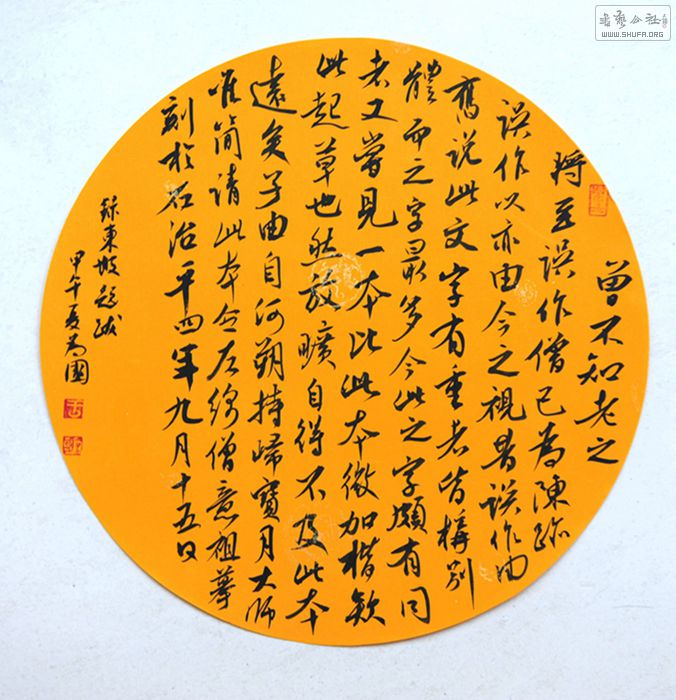 曾不知老之
將至誤作僧已為陳跡
誤作以亦由今之視昔誤作由
舊說此文字有重者皆構別
體而之字最多今此之字頗有同
者又嘗見一本比此本微加楷欵
此起草也然放曠自得不及此本
遠矣子由自河朔持歸寶月大師
唯簡請此本令左綿僧意祖摹
刻於石治平四年九月十五日
錄東坡題跋
甲午夏為國
書藝公社
WWW.SHUFA.ORG